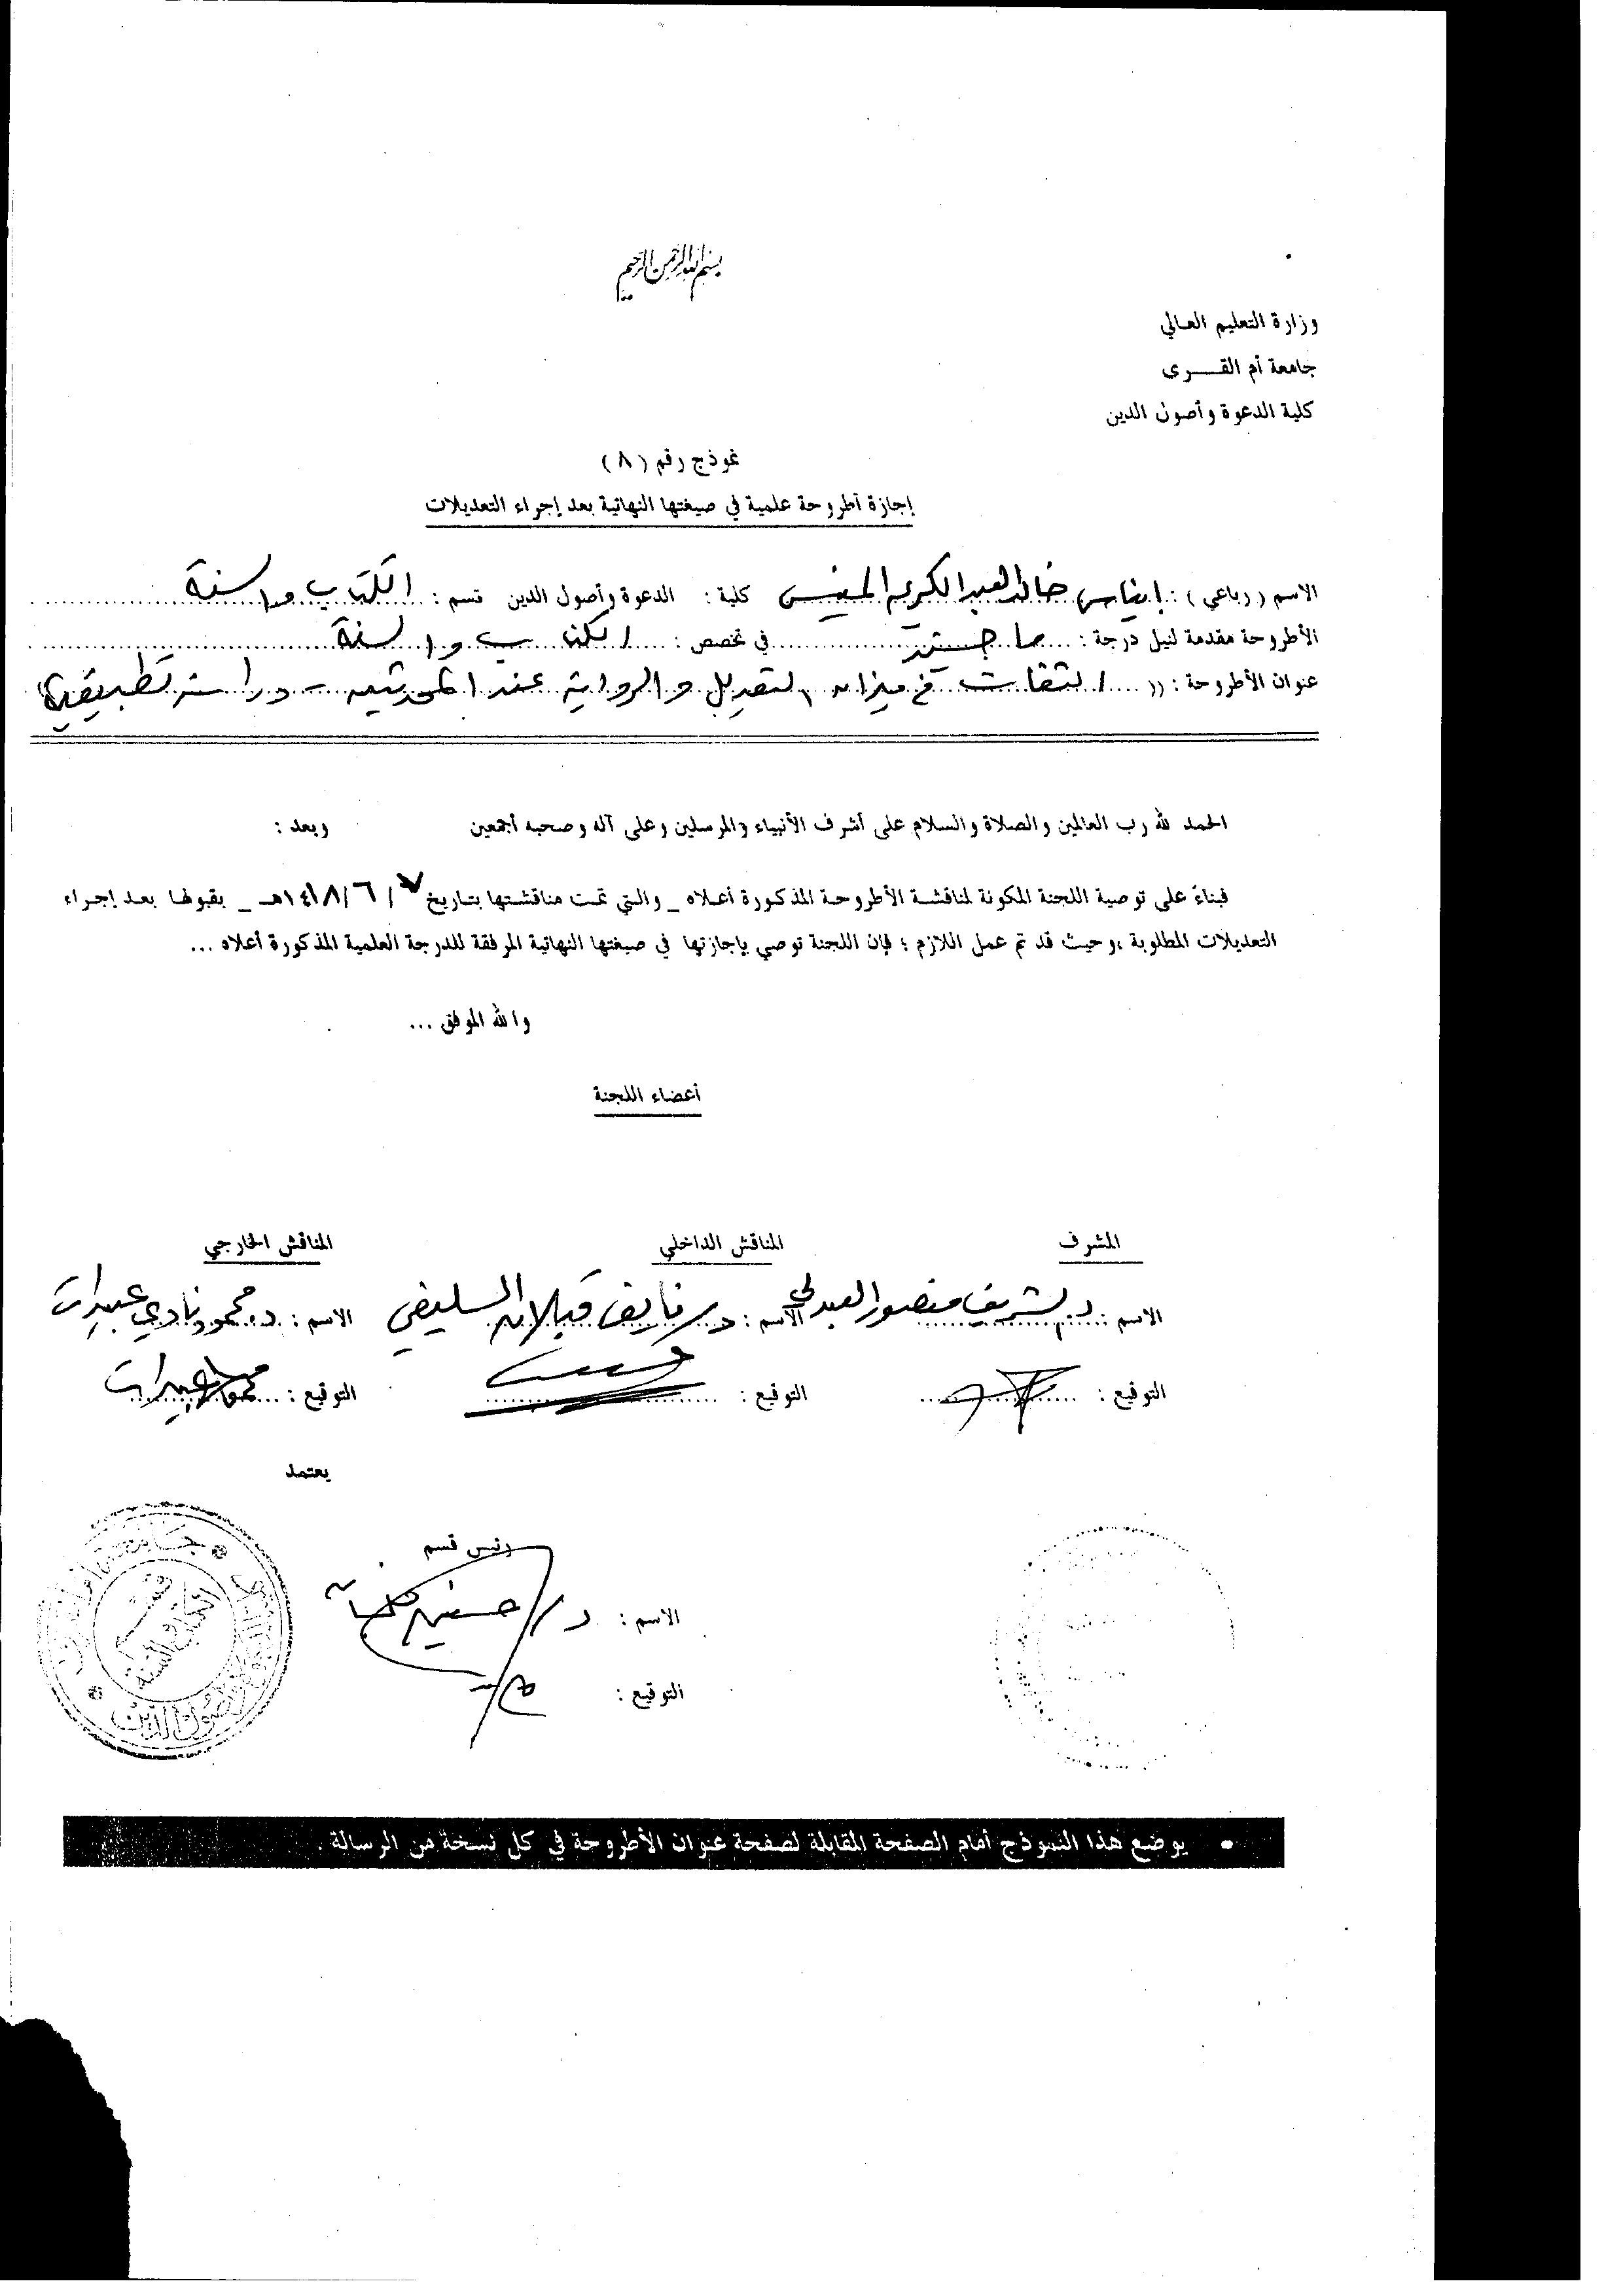 بسم الله الرحمن الرحيم
وزارة التعليم العالي
جامعة أم القـــرى
كلية الدعوة وأصول الدين
نموذج رقم (٨)
إجازة أطروحة علمية في صيغتها النهائية بعد إجراء التعديلات
الاسم (رباعي) : إيناس خالد العبد الكريم كلية : الدعوة وأصول الدين قسم : الكتاب والسنة
الأطروحة مقدمة لنيل درجة : ماجستير في تخصص : الكتاب والسنة
عنوان الأطروحة : (( الثقات في ميزان التعديل والرواية عند المحدثين - دراسة تطبيقية ))
الحمد لله رب العالمين والصلاة والسلام على أشرف الأنبياء والمرسلين وعلى آله وصحبه أجمعين وبعد :
فبناءً على توصية اللجنة المكونة لمناقشة الأطروحة المذكورة أعلاه _ والتي تمت مناقشتها بتاريخ ٧ / ٦ /١٤١٨هـ _ بقبولها بعد إجراء
التعديلات المطلوبة ،وحيث قد تم عمل اللازم ؛ فإن اللجنة توصي بإجازتها في صيغتها النهائية المرفقة للدرجة العلمية المذكورة أعلاه ...
والله الموفق ...
أعضاء اللجنة
المشرف المناقش الداخلي المناقش الخارجي
الاسم : د. الشريف منصور العبدلي الاسم : د/ نايف قبلان الاسم : د. محمود نادي عبيدات
التوقيع : التوقيع : التوقيع : محمود عبيدات
يعتمد
رئيس قسم
الاسم : د/
التوقيع :
• يوضع هذا النموذج أمام الصفحة المقابلة لصفحة عنوان الأطروحة في كل نسخة من الرسالة .